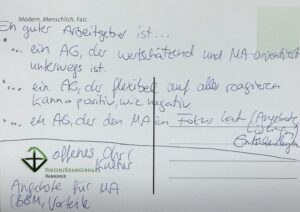 Modern. Menschlich. Fair.
Ein guter Arbeitgeber ist...
... ein AG, der wertschätzend und MA-orientiert
unterwegs ist.
... ein AG, der flexibel auf alles reagieren
kann = positiv, wie negativ
... ein AG, der den MA im Fokus hat (Angebote
Entscheidungen
offenes Ohr/
Kultur
VINZENZKRANKENHAUS
HANNOVER
Angebote für MA
(BGM, Vorteile